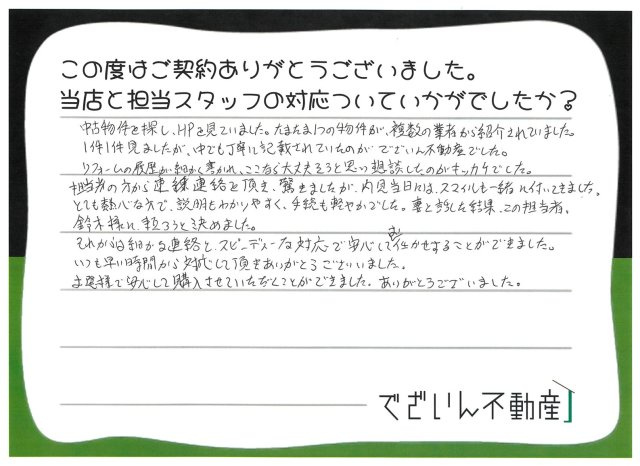 この度はご契約ありがとうございました。
当店と担当スタッフの対応ついていかがでしたか？
中古物件を探し、HPを見ていました。たまたま1つの物件が、複数の業者から紹介されていました。
1件1件見ましたが、中でも丁寧に記載されていたのがでざいん不動産でした。
リフォームの履歴が細かく書かれ、ここなら大丈夫そうと思い相談したのがキッカケでした。
担当者の方から連絡を頂き、驚きましたが、内見当日には、スマイルも一緒に付いてきました。
とても熱心な方で、説明もわかりやすく、手続も軽やかでした。妻と話した結果、この担当者、
鈴木様に頼ろうと決めました。
それから細かな連絡と、スピーディーな対応で安心してお任せすることができました。
いつも早い時間から対応して頂きありがとうございました。
お陰様で安心して購入させていただくことができました。ありがとうございました。
でざいん不動産